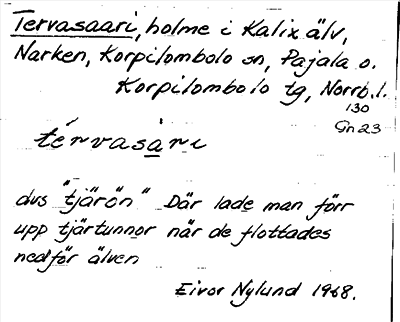 Tervasaari, holme i Kalix älv,
Narken, Korpilombolo sn, Pajala o.
Korpilombolo tg, Norrb. l.
130
Gn 23
térvasàri
dvs "tjärön" Där lade man förr
upp tjärtunnor när de flottades
nedför älven
Eivor Nylund 1968.